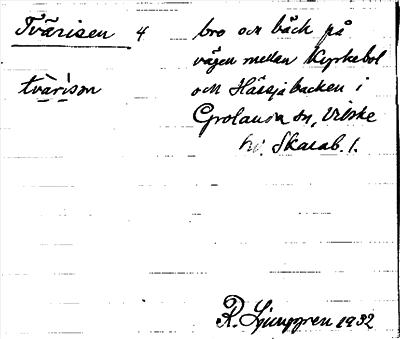 Tvärisen 4 bro och bäck på
vägen mellan Kyrkebol
tvärisen och Hässjabacken i
Grolanda sn, Vilske
hd. Skarab. l.
R. Ljunggren 1932